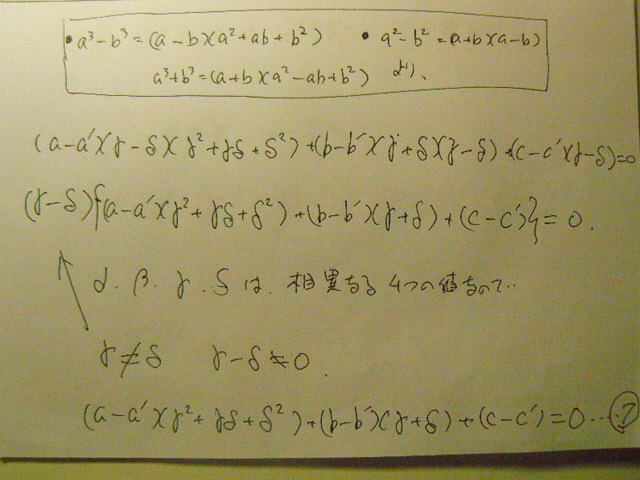 • a³-b³=(a-b)(a²+ab+b²) • a²-b²=(a+b)(a-b)
a³+b³=(a+b)(a²-ab+b²) より、
(a-a')(γ-δ)(γ²+γδ+δ²)+(b-b')(γ+δ)(γ-δ)+(c-c')(γ-δ)=0
(γ-δ){(a-a')(γ²+γδ+δ²)+(b-b')(γ+δ)+(c-c')}=0.
α.β.γ.δは.相異なる4つの値なので‥
γ≠δ γ-δ≠0.
(a-a')(γ²+γδ+δ²)+(b-b')(γ+δ)+(c-c')=0…⑦